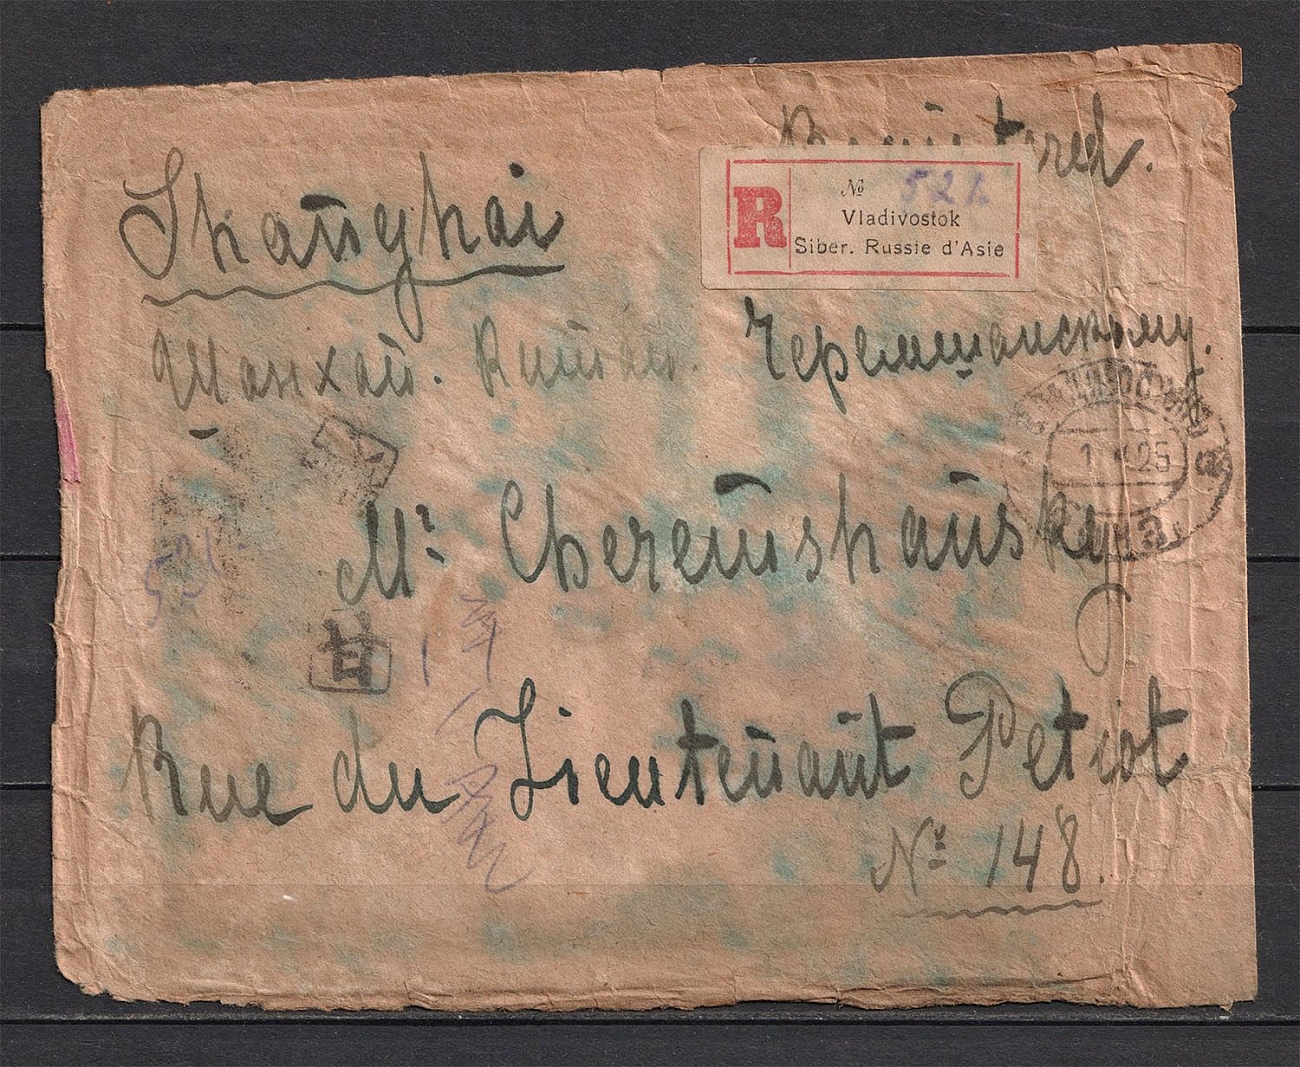 Registered.
R
№ 521.
Vladivostok
Siber. Russie d'Asie
Shanghai
Шанхай. Китай.
Черемшанскому.
1 25
Mr. Cheremshansky
521.
廿
Rue du Lieutenant Petiot
No. 148.